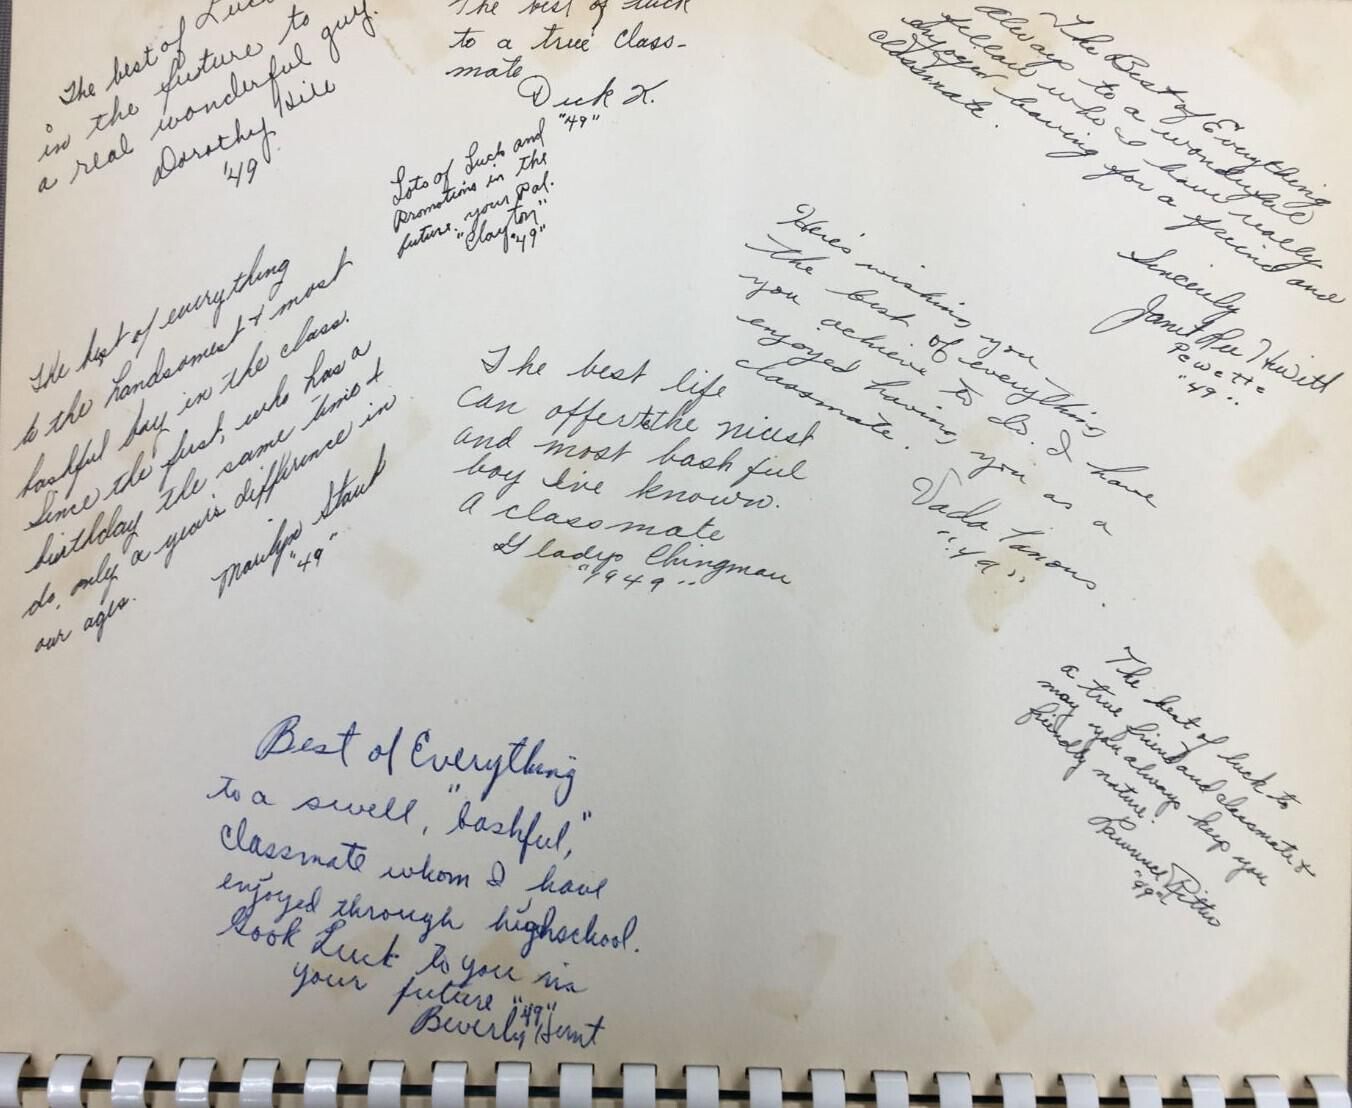 The best of Luck
in the future to
a real wonderful guy.
Dorothy Hill
'49
The best of luck
to a true class-
mate
Dick K.
"49"
Lots of Luck and
Promotions in the
future. your Pal.
"Clayton"
"49"
The Best of Everything
always to a wonderful
fellow who I have really
enjoyed having for a friend and
classmate.
Sincerly
Janet Lee Hewitt
Pewette
"49"
Here's wishing you
the best of everything
you achieve to do. I have
enjoyed having you as a
classmate.
Vada Tanous.
"49"
The best of everything
to the handsomest & most
bashful boy in the class.
Since the first, who has a
birthday the same time I
do, only a years difference in
our ages.
Marilyn Staub
"49"
The best life
can offer to the nicest
and most bashful
boy I've known.
A classmate
Gladys Chingman
"1949"
The best of luck to
a true friend and classmate &
may you always keep your
friendly nature!
"49"
Best of Everything
to a swell, "bashful,"
classmate whom I have
enjoyed through highschool.
Gook Luck to you in
your future "49"
Beverly Hunt